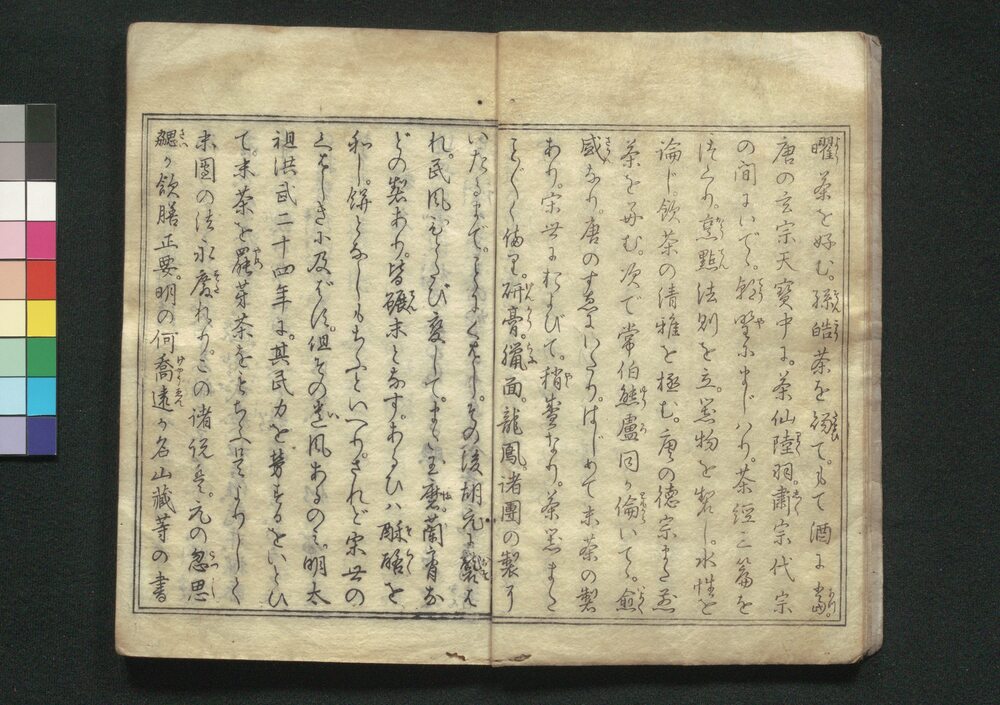 曜茶を好む。孫皓茶を賜て。もて酒に当。
唐の玄宗天寶中に。茶仙陸羽。肅宗代宗
の間にいでゝ。朝野にまじハり。茶経三篇を
つくり。烹點法則を立。器物を製し。水性を
論じ。飲茶の清雅を極む。唐の徳宗また煎
茶を好む。次で常伯熊盧同が倫いでゝ。愈
盛なり。唐のすゑにいたり。はじめて末茶の製
あり。宋世におよびて。稍盛なり。茶器また
こと〴〵く備り。研膏。臘面。龍鳳。諸團の製に
いたるまで。ことによくせり。その後胡元に襲は
れ。民風ひとたび変して。また玉磨。蘭膏な
どの製あり。皆碾末となす。あるひハ酥酪を
和し。餅となしもちふといへり。されど宋世の
くはしきに及ばず。但その遺風あるのミ。明太
祖洪武二十四年に。其民力を労するをいとひ
て。末茶を罷芽茶をもちふ
末團の法永廃れり。この諸説は。元の忽思
慧が飲膳正要。明の何喬遠が名山藏等の書